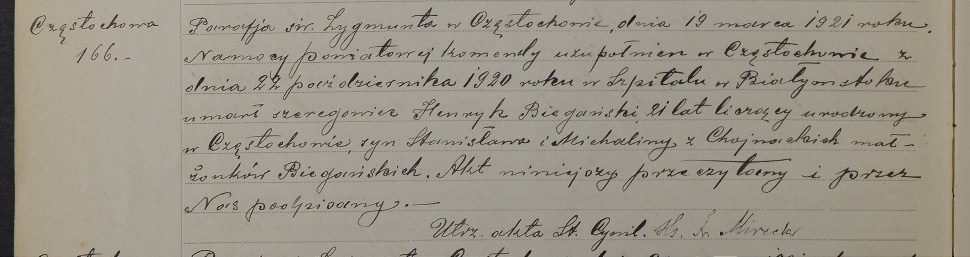 Częstochowa
166.-
Parafja św. Zygmunta w Częstochowie, dnia 19 marca 1921 roku.
Na mocy powiatowej komendy uzupełnień w Częstochowie z
dnia 22 października 1920 roku w Szpitalu w Białymstoku
umarł szeregowiec Henryk Biegański, 21 lat liczący urodzony
w Częstochowie, syn Stanisława i Michaliny z Chojnackich mał-
żonków Biegańskich. Akt niniejszy przeczytany i przez
Nas podpisany. —
Utrz. akta St. Cywil. Ks. Fr. Mirecki